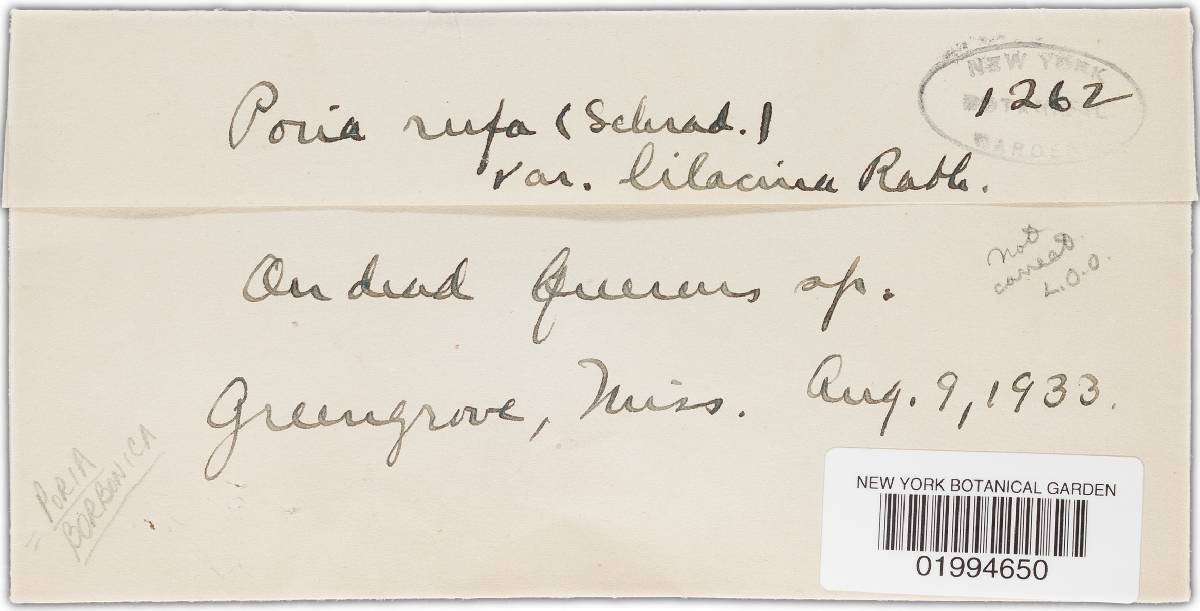 NEW YORK
BOTANICAL
GARDEN
1262
Poria rufa (Schrad.)
var. lilacina Rabh.
On dead Quercus sp.
not
correct
L.O.O.
Greengrove, Miss. Aug. 9, 1933.
= PORIA
BORBONICA
NEW YORK BOTANICAL GARDEN
01994650